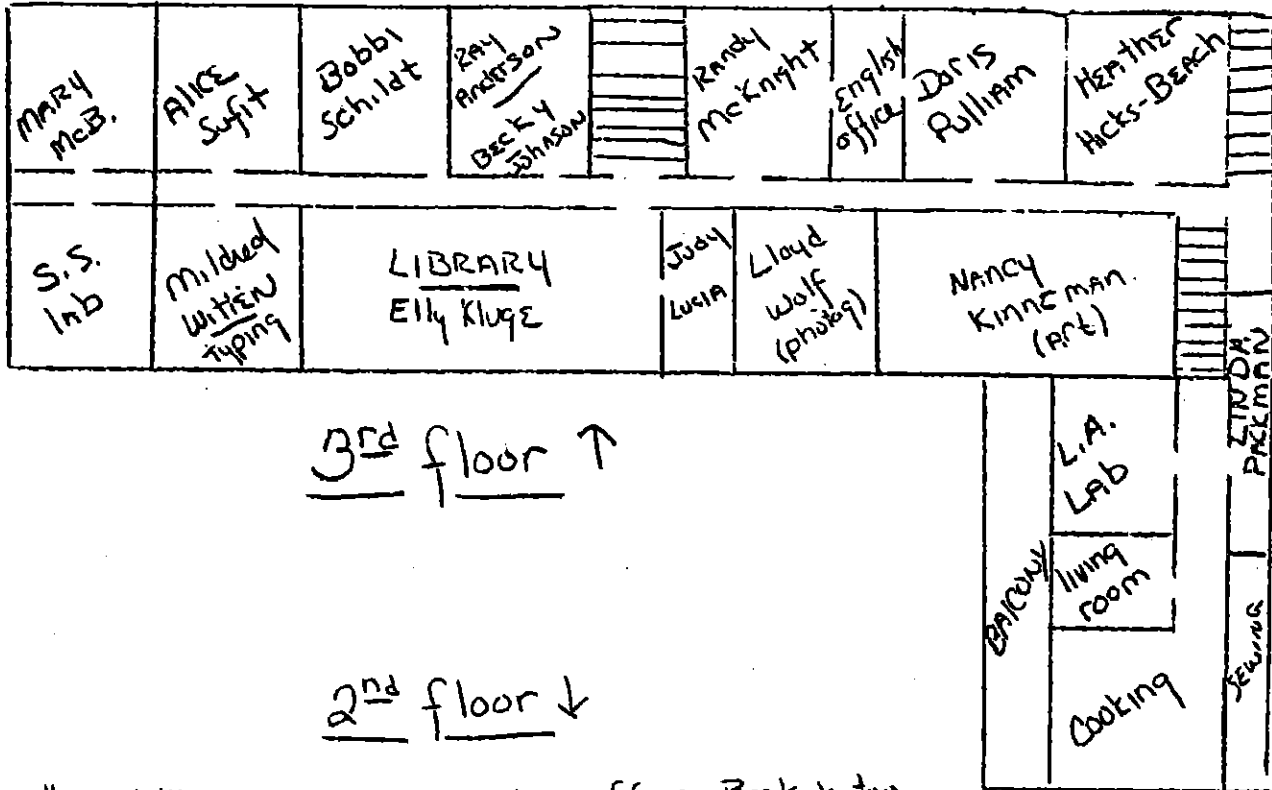 MARY
McB.
ALICE
Sufit
Bobbi
Schildt
RAY
ANDERSON
BECKY
JOHNSON
RANDY
McKnight
English
office
Doris
Pulliam
HEATHER
HICKS-BEACH
S.S.
lab
Mildred
WITTEN
typing
LIBRARY
Elly Kluge
Judy
LUCIA
Lloyd
Wolf
(photog)
NANCY
KINNEMAN
(art)
LINDA
PACKMAN
L.A.
LAB
BALCONY
living
room
SEWING
Cooking
3rd floor ↑
2nd floor ↓